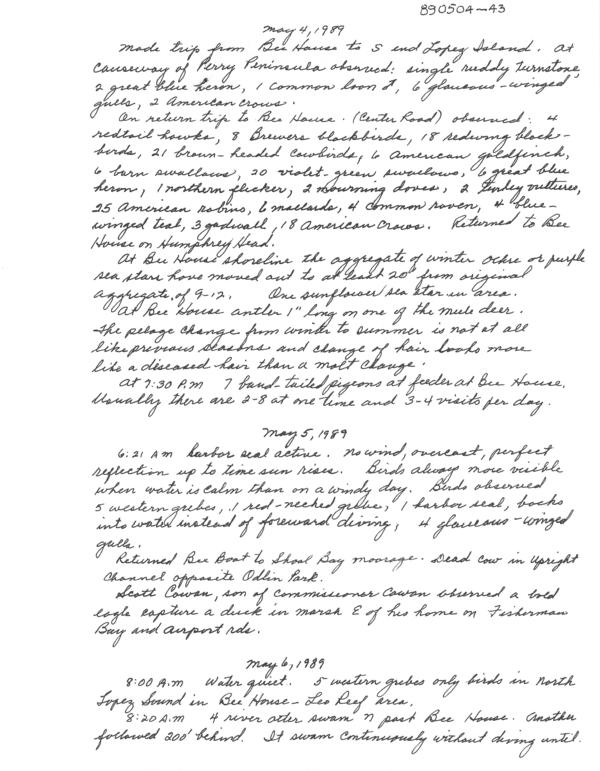 890504-43
May 4, 1989
Made trip from Bee House to S end Lopez Island. At
causeway of Perry Peninsula observed: single ruddy turnstone,
2 great blue heron, 1 common loon, 6 glaucous-winged
gulls, 2 American crows.
On return trip to Bee House. (Center Road) observed: 4
redtail hawks, 8 Brewers blackbirds, 18 redwing black-
birds, 21 brown-headed cowbirds, 6 American goldfinch,
6 barn swallows, 20 violet-green swallows, 6 great blue
heron, 1 northern flicker, 2 mourning doves, 2 turkey vultures,
25 American robins, 6 mallards, 4 common raven, 4 blue-
winged teal, 3 gadwall, 18 American crows. Returned to Bee
House on Humphrey Head.
At Bee House shoreline the aggregate of winter ochre or purple
sea stars have moved out to at least 20' from original
aggregate, of 9-12. One sunflower sea star in area.
At Bee House antler 1" long on one of the mule deer.
The pelage change from winter to summer is not at all
like previous seasons and change of hair looks more
like a diseased hair than a molt change.
At 7:30 P.M 7 band-tailed pigeons at feeder at Bee House.
Usually there are 2-8 at one time and 3-4 visits per day.
May 5, 1989
6:21 AM harbor seal active. No wind, overcast, perfect
reflection up to time sun rises. Birds always more visible
when water is calm than on a windy day. Birds observed
5 western grebes, 1 red-necked grebe, 1 harbor seal, backs
into water instead of foreward diving, 4 glaucous-winged
gulls.
Returned Bee Boat to Shoal Bay moorage. Dead cow in Upright
Channel opposite Odlin Park.
Scott Cowan, son of commissioner Cowan observed a bald
eagle capture a duck in marsh E of his home on Fisherman
Bay and airport rds.
May 6, 1989
8:00 A.M Water quiet. 5 western grebes only birds in North
Lopez Sound in Bee House-Leo Reef area.
8:20 A.M 4 river otter swam N past Bee House. Another
followed 200' behind. It swam continuously without diving until.